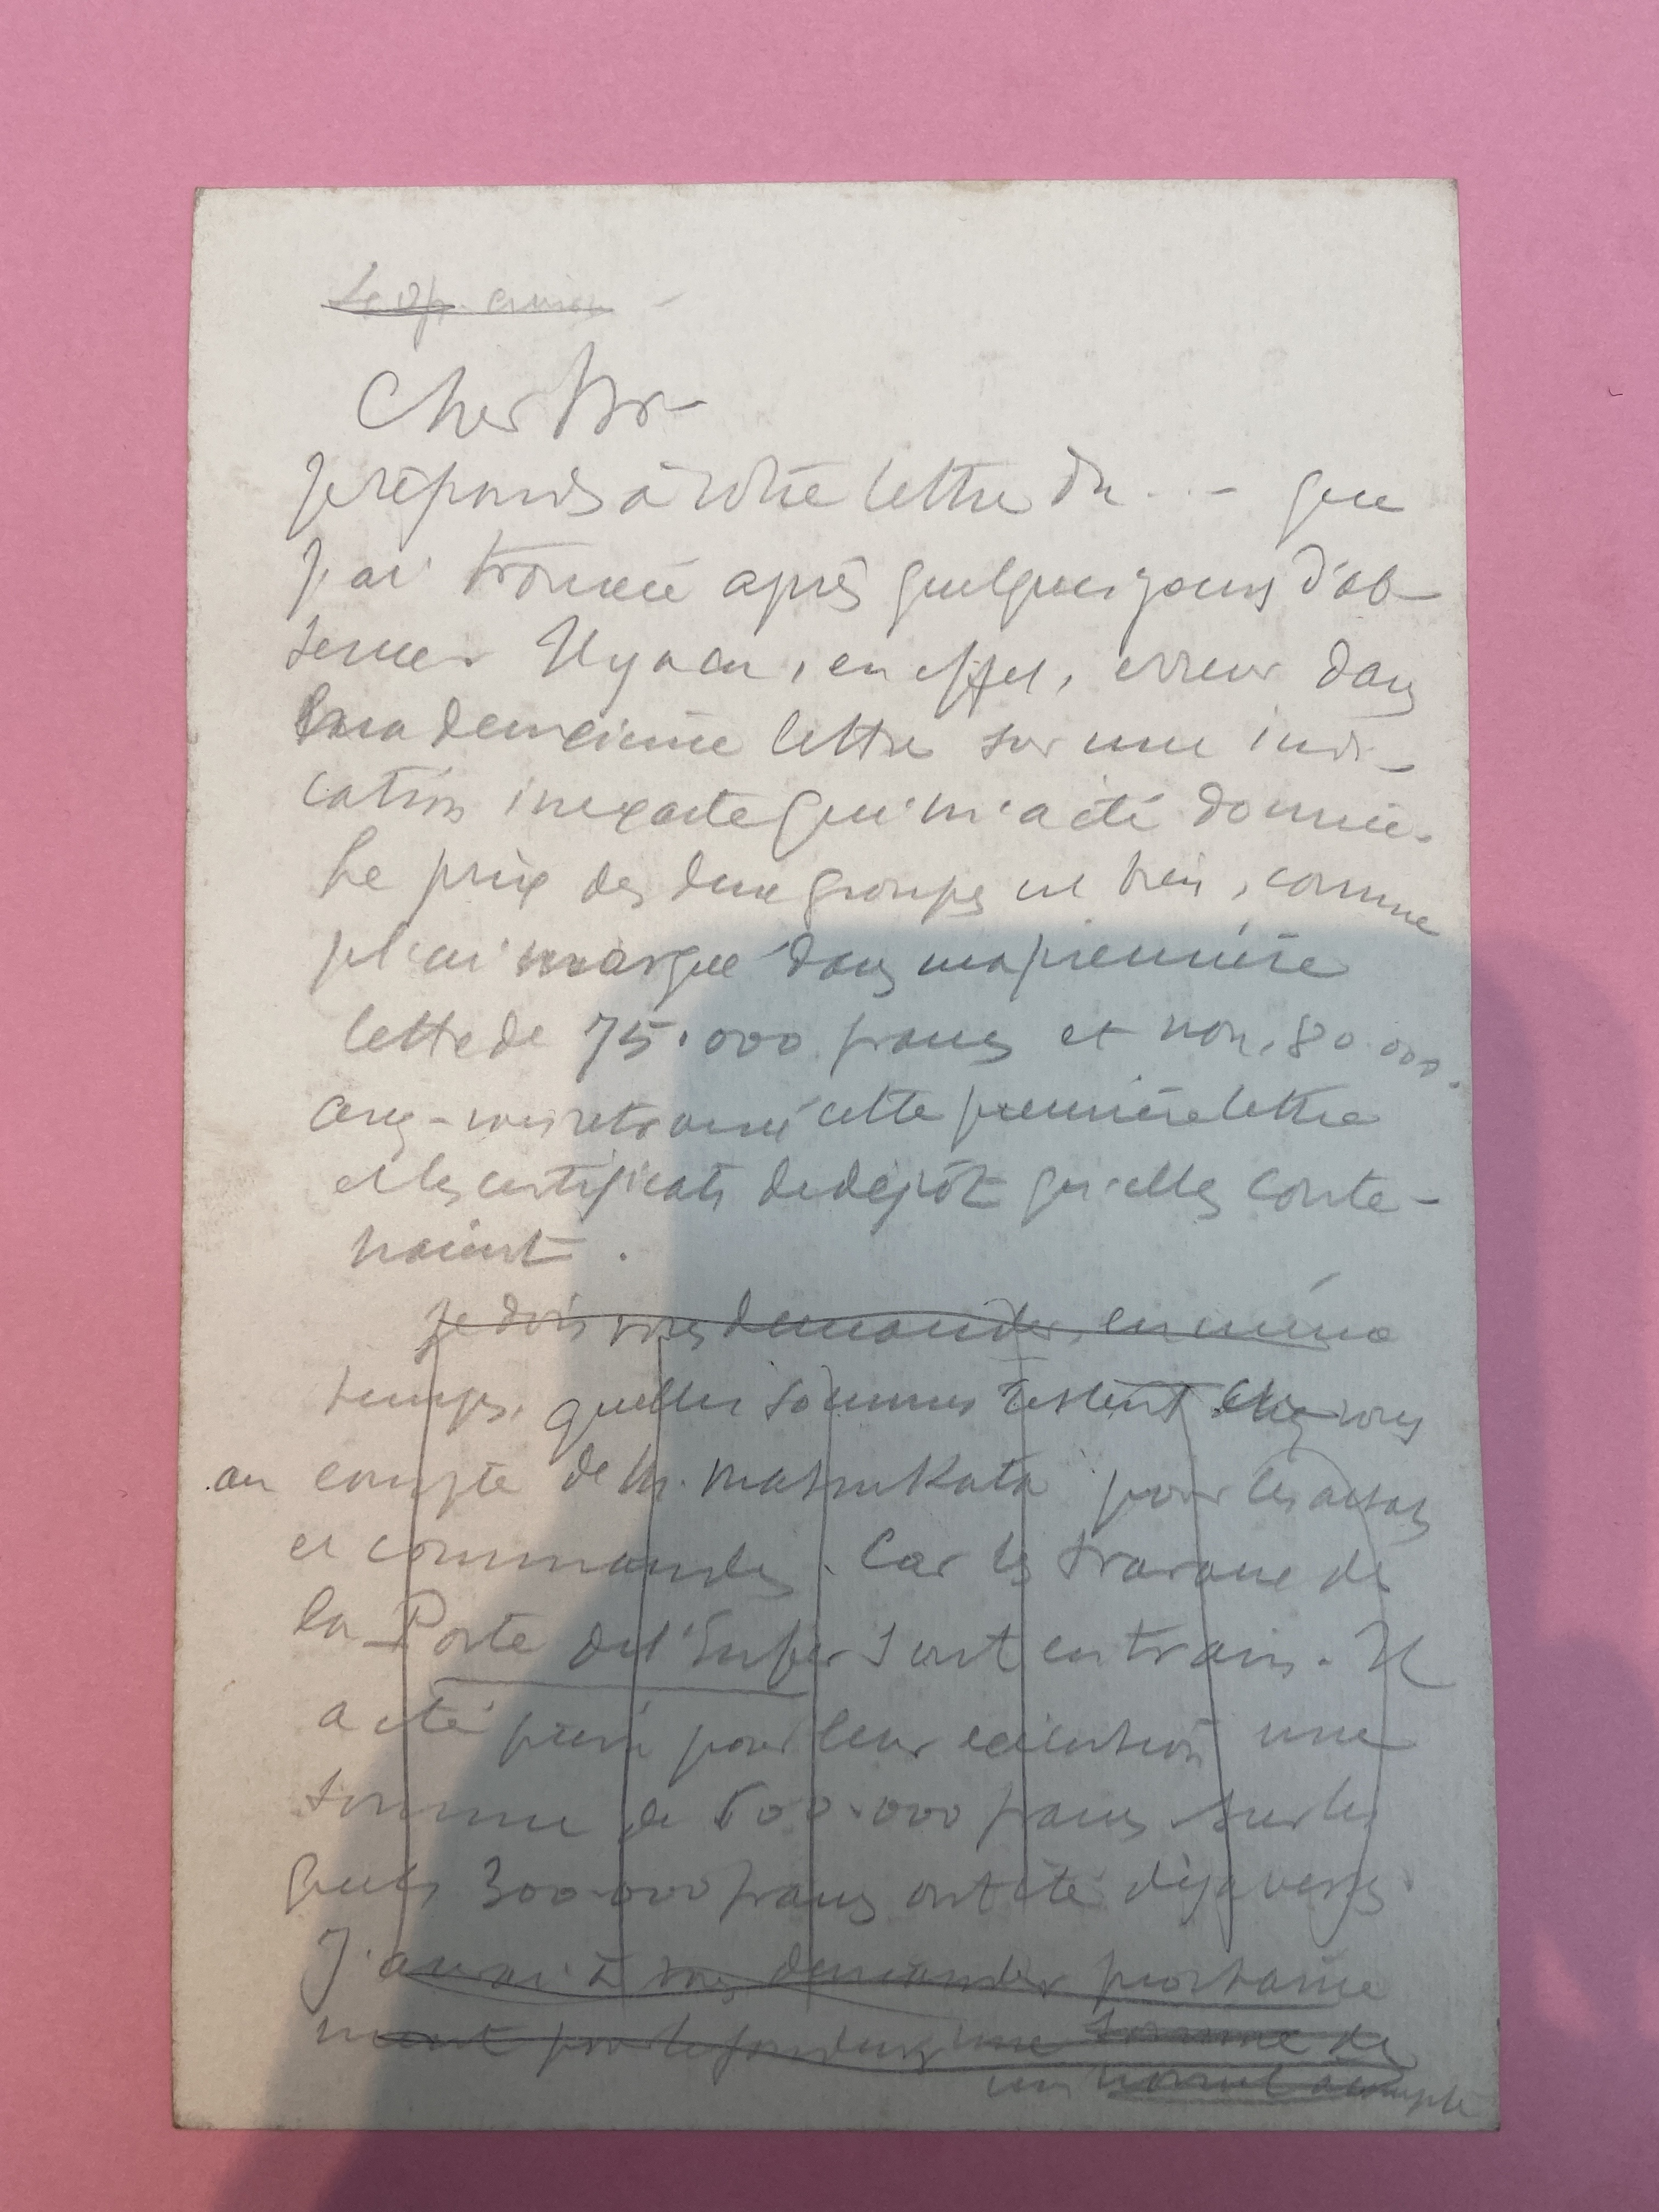 Cher Mr
je réponds à votre lettre du ... - que
j'ai trouvée après quelques jours d'ab-
sence. Il y a eu, en effet, erreur dans
ma deuxième lettre sur une indi-
cation inexacte qui m'a été donnée.
Le prix des deux groupes est bien, comme
je l'ai marqué dans ma première
lettre de 75.000 francs et non, 80.000.
avez-vous retrouvé cette première lettre
et les certificats de dépôt qu'elles conte-
naient.
Je dois vous demander, en même
temps, quelles sommes restent chez vous
au compte de M. Matsukata pour les achats
et commandes. Car les travaux de
la Porte de l'Enfer sont en train. Il
a été prévu pour leur exécution une
somme de 500.000 francs sur les
quels 300.000 francs ont été déjà versés.
J'aurai à vous demander prochaine
ment pour le fondeur une somme de
un nouvel acompte